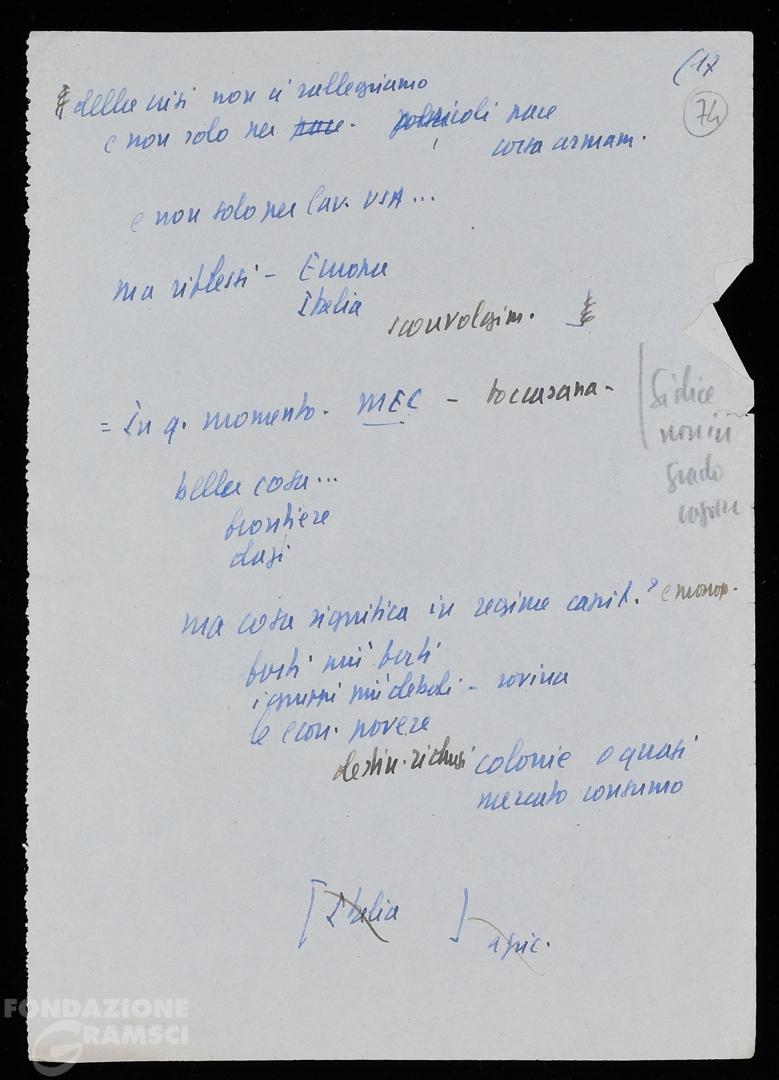 (17
74
della crisi non ci rallegriamo
e non solo per pace. pericoli pace
corsa armam.
e non solo per lav. USA...
ma riflessi - Europa
Italia
sconvolgim.
= In q. momento. MEC - toccasana -
Si dice
non in
grado
bella cosa...
frontiere
dazi
ma cosa significa in regime capit.? e monop.
forti più forti
i gruppi più deboli - rovina
le econ. povere
destin. ridursi colonie o quasi
mercato consumo
[Italia ] agric.
FONDAZIONE
GRAMSCI
onlus